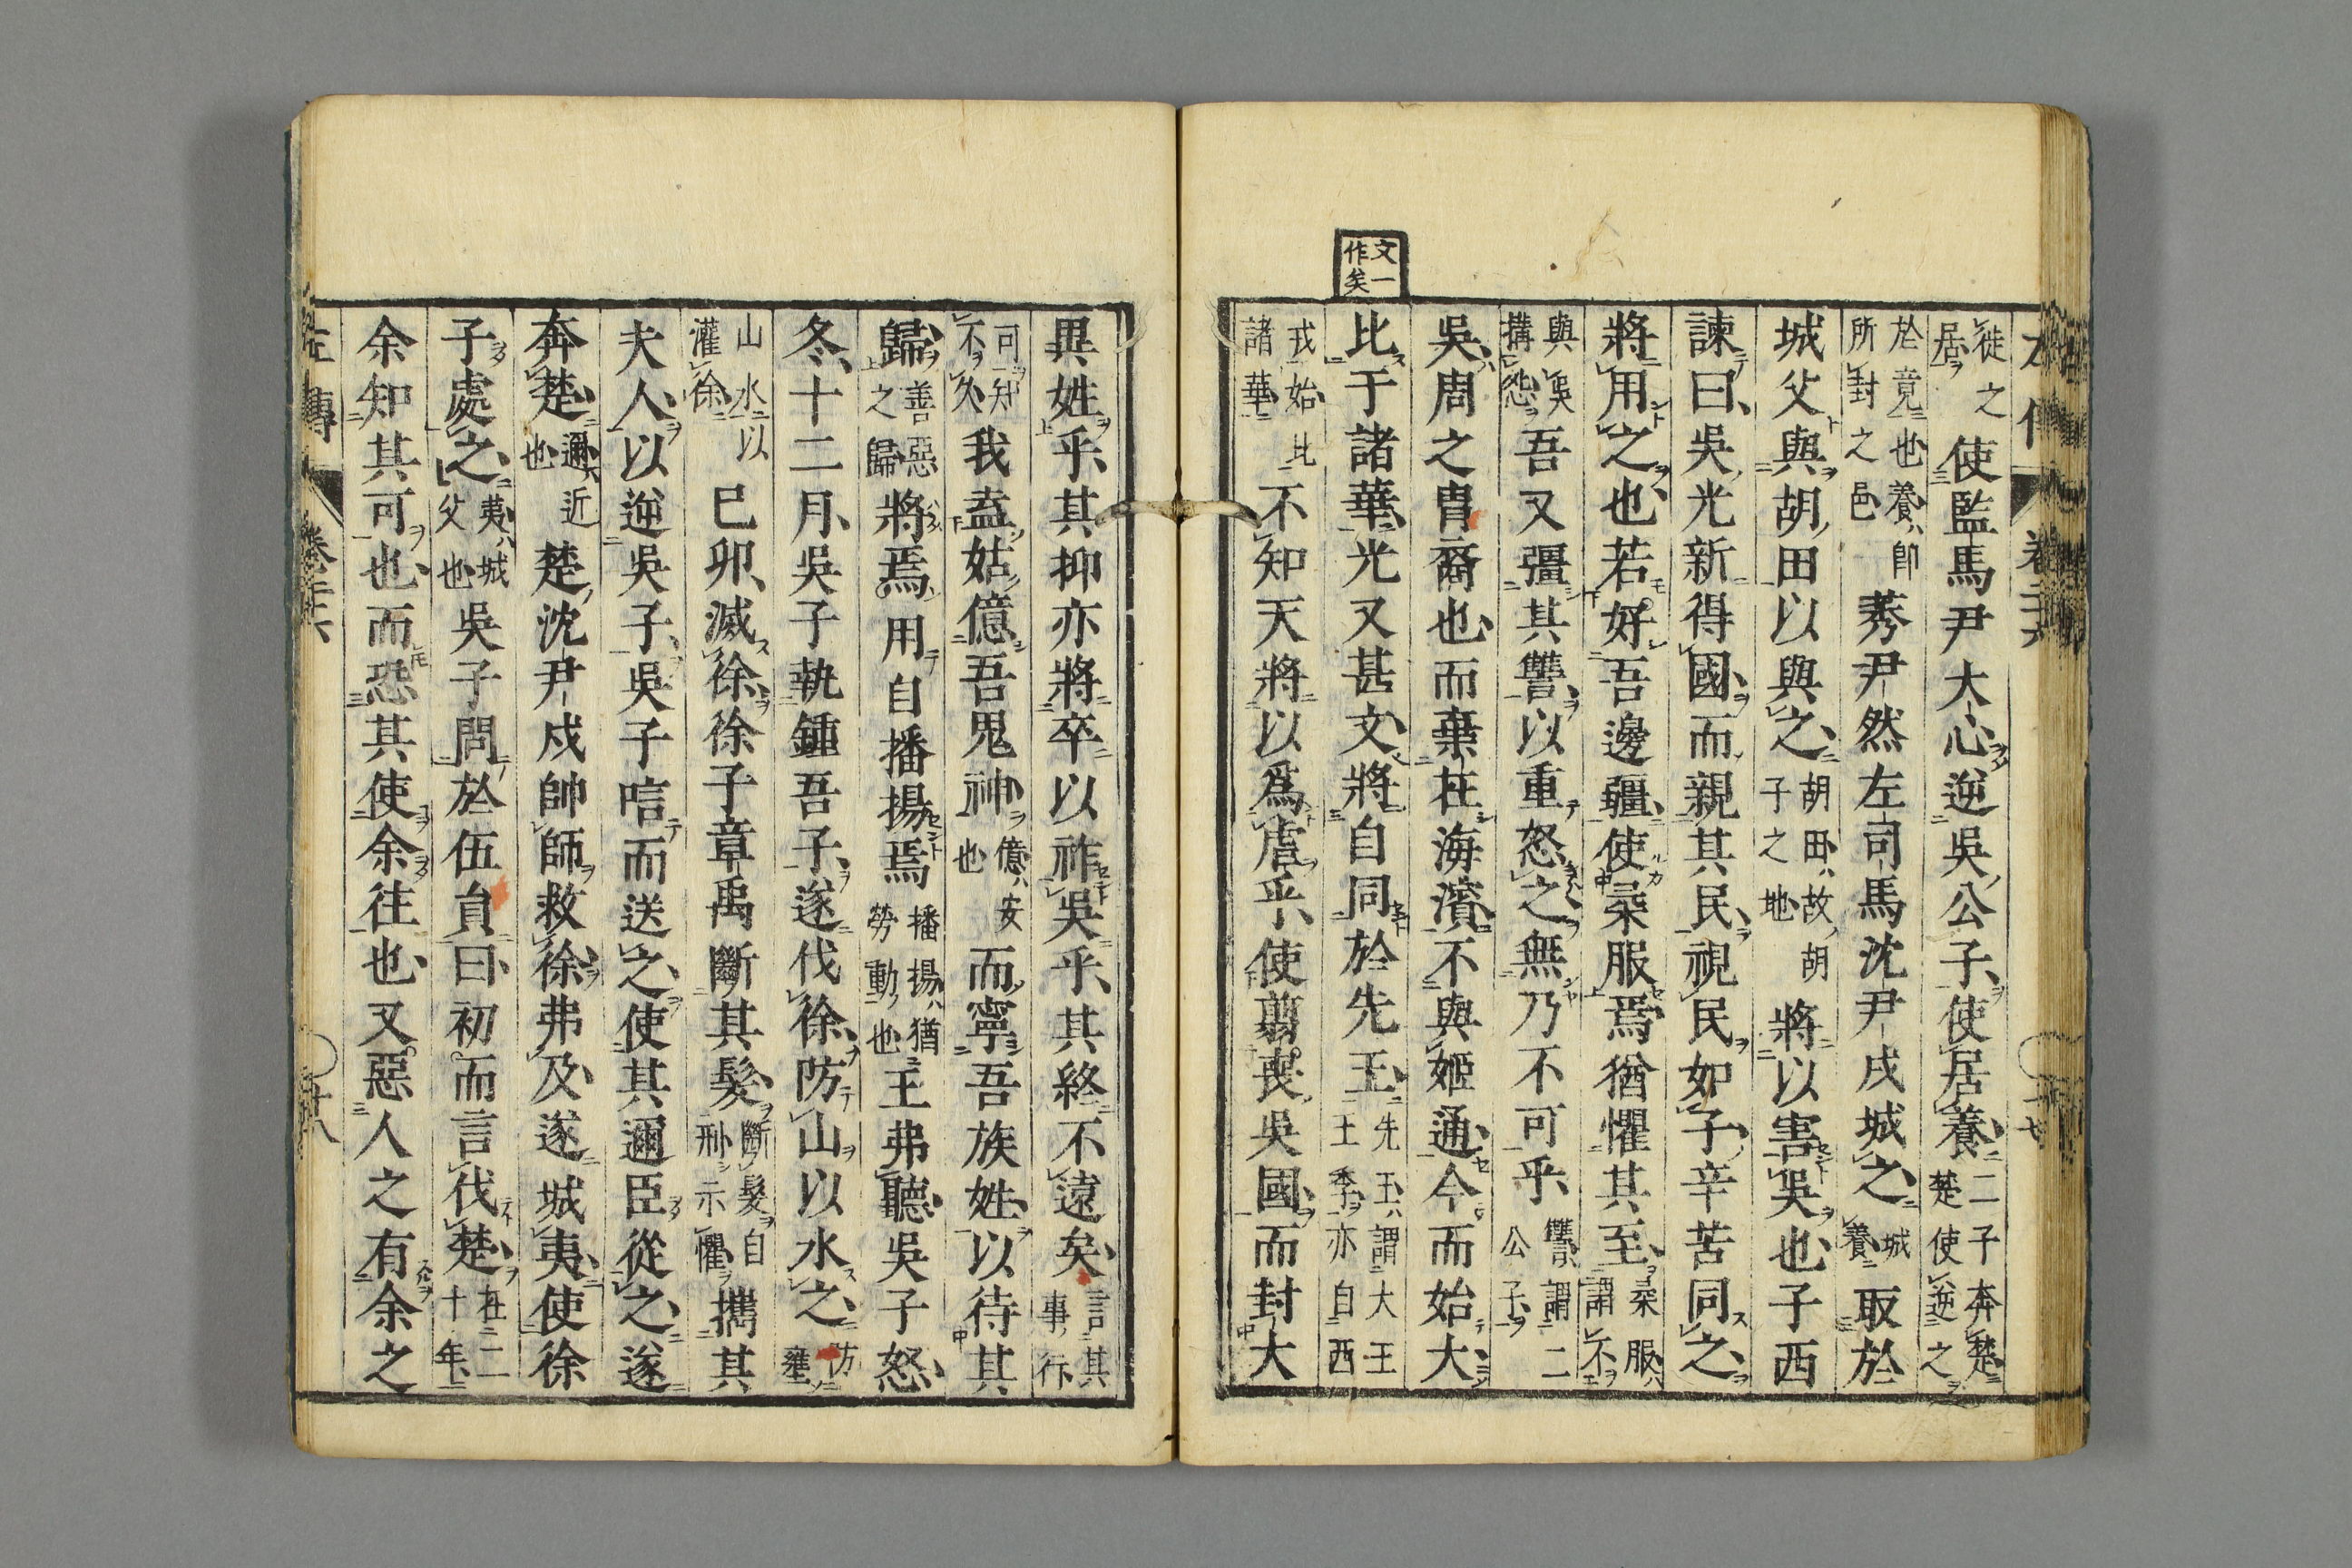 文一作矣
徙之居使監馬尹大心逆吳公子使居養二子奔楚楚使逆之
於竟也養即所封之邑莠尹然左司馬沈尹戌城之城養取於
城父與胡田以與之胡田故胡子之地將以害吳也子西
諫曰吳光新得國而親其民視民如子辛苦同之
將用之也若好吾邊疆使柔服焉猶懼其至柔服謂不
與吳搆怨吾又彊其讐以重怒之無乃不可乎讐謂二公子
吳周之冑裔也而棄在海濱不與姬通今而始大
比于諸華光又甚文將自同於先王先王謂大王王季亦自西
戎始比諸華不知天將以爲虐乎使翦喪吳國而封大
異姓乎其抑亦將卒以祚吳乎其終不遠矣言其事行
可知不久我盍姑億吾鬼神億安也而寧吾族姓以待其
歸善惡之歸將焉用自播揚焉播揚猶勞動也王弗聽吳子怒
冬十二月吳子執鍾吾子遂伐徐防山以水之防壅
山水以灌徐巳卯滅徐徐子章禹斷其髮斷髮自刑示懼攜其
夫人以逆吳子吳子唁而送之使其邇臣從之遂
奔楚邇近也楚沈尹戍帥師救徐弗及遂城夷使徐
子處之夷城父也吳子問於伍員曰初而言伐楚在二十年
余知其可也而恐其使余往也又惡人之有余之
左傳 卷二十六 廿八